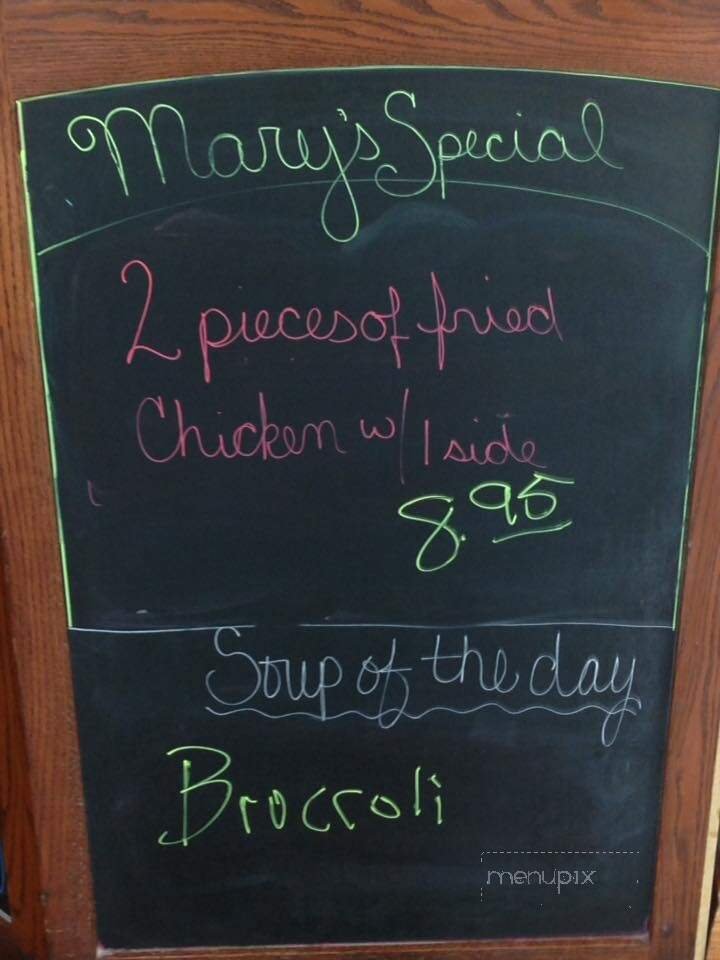 Mary's Special
2 pieces of fried
Chicken w/ 1 side
8.95
Soup of the day
Broccroli
menupix